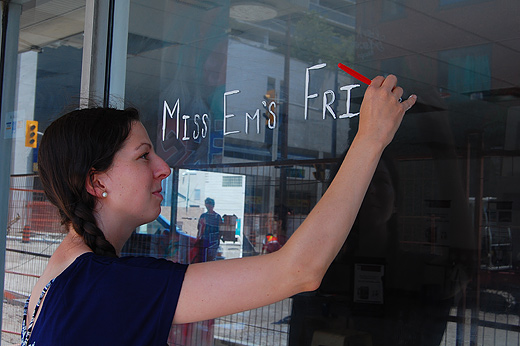 Miss Em's Fri